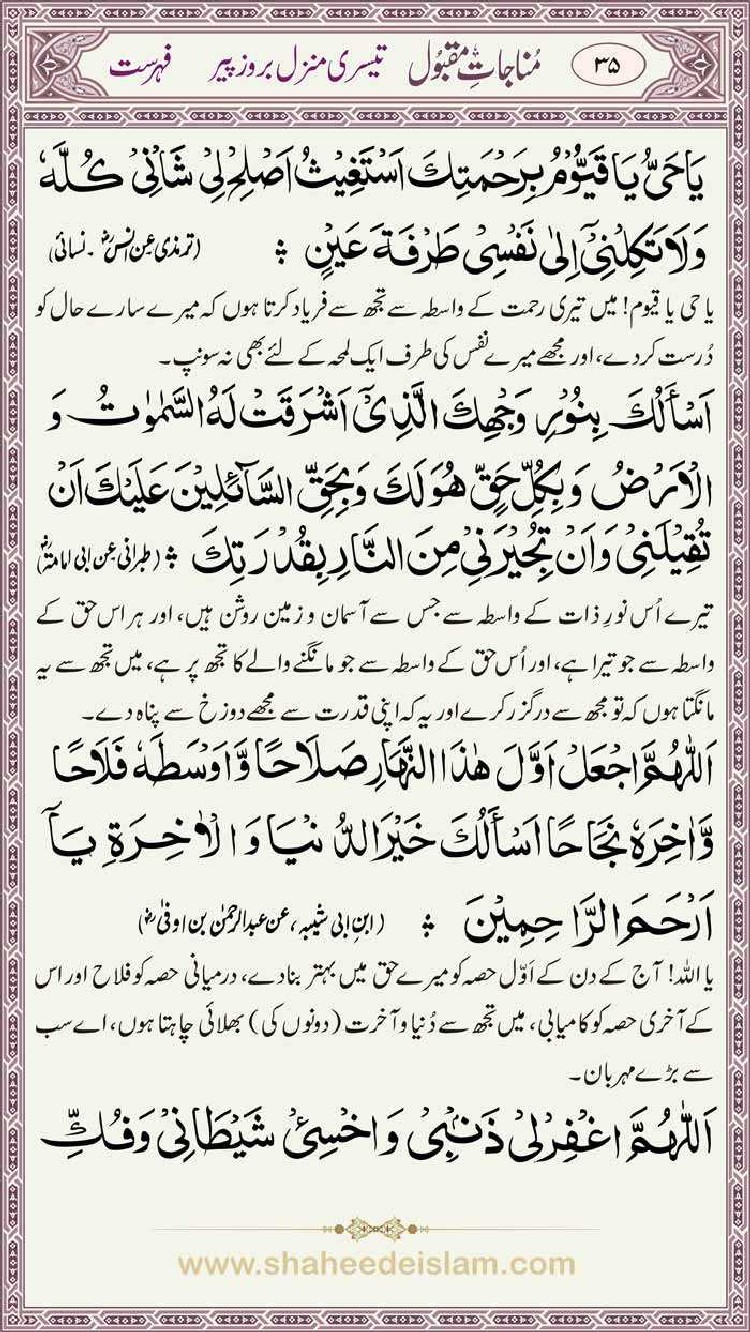 ۳۵ مُناجاتِ مقبُول تیسری منزل بروز پیر فہرست
يَاحَيُّ يَا قَيُّوْمُ بِرَحْمَتِكَ اَسْتَغِيْثُ اَصْلِحْ لِيْ شَاْنِيْ كُلَّهٗ
وَلَا تَكِلْنِيْ اِلٰى نَفْسِيْ طَرْفَةَ عَيْنٍ ؞ (ترمذی عن انسؓ ۔ نسائی)
یا حی یا قیوم! میں تیری رحمت کے واسطہ سے تجھ سے فریاد کرتا ہوں کہ میرے سارے حال کو
دُرست کردے، اور مجھے میرے نفس کی طرف ایک لمحہ کے لئے بھی نہ سونپ۔
اَسْأَلُكَ بِنُوْرِ وَجْهِكَ الَّذِيْ اَشْرَقَتْ لَهُ السَّمٰوٰتُ وَ
الْاَرْضُ وَبِكُلِّ حَقٍّ هُوَ لَكَ وَبِحَقِّ السَّآئِلِيْنَ عَلَيْكَ اَنْ
تُقِيْلَنِيْ وَاَنْ تُجِيْرَنِيْ مِنَ النَّارِ بِقُدْرَتِكَ ؞ (طبرانی عن ابی امامۃؓ)
تیرے اُس نورِ ذات کے واسطہ سے جس سے آسمان و زمین روشن ہیں، اور ہر اس حق کے
واسطہ سے جو تیرا ہے، اور اُس حق کے واسطہ سے جو مانگنے والے کا تجھ پر ہے، میں تجھ سے یہ
مانگتا ہوں کہ تو مجھ سے درگزر کرے اور یہ کہ اپنی قدرت سے مجھے دوزخ سے پناہ دے۔
اَللّٰهُمَّ اجْعَلْ اَوَّلَ هٰذَا النَّهَارِ صَلَاحًا وَّاَوْسَطَهٗ فَلَاحًا
وَّاٰخِرَهٗ نَجَاحًا اَسْأَلُكَ خَيْرَ الدُّنْيَا وَالْاٰخِرَةِ يَآ
اَرْحَمَ الرَّاحِمِيْنَ ؞ (ابن ابی شیبہ، عن عبدالرحمٰن بن اوفیٰؓ)
یا اللہ! آج کے دن کے اَوّل حصہ کو میرے حق میں بہتر بنادے، درمیانی حصہ کو فلاح اور اس
کے آخری حصہ کو کامیابی، میں تجھ سے دُنیا وآخرت (دونوں کی) بھلائی چاہتا ہوں، اے سب
سے بڑے مہربان۔
اَللّٰهُمَّ اغْفِرْ لِيْ ذَنْبِيْ وَاخْسِئْ شَيْطَانِيْ وَفُكَّ
www.shaheedeislam.com